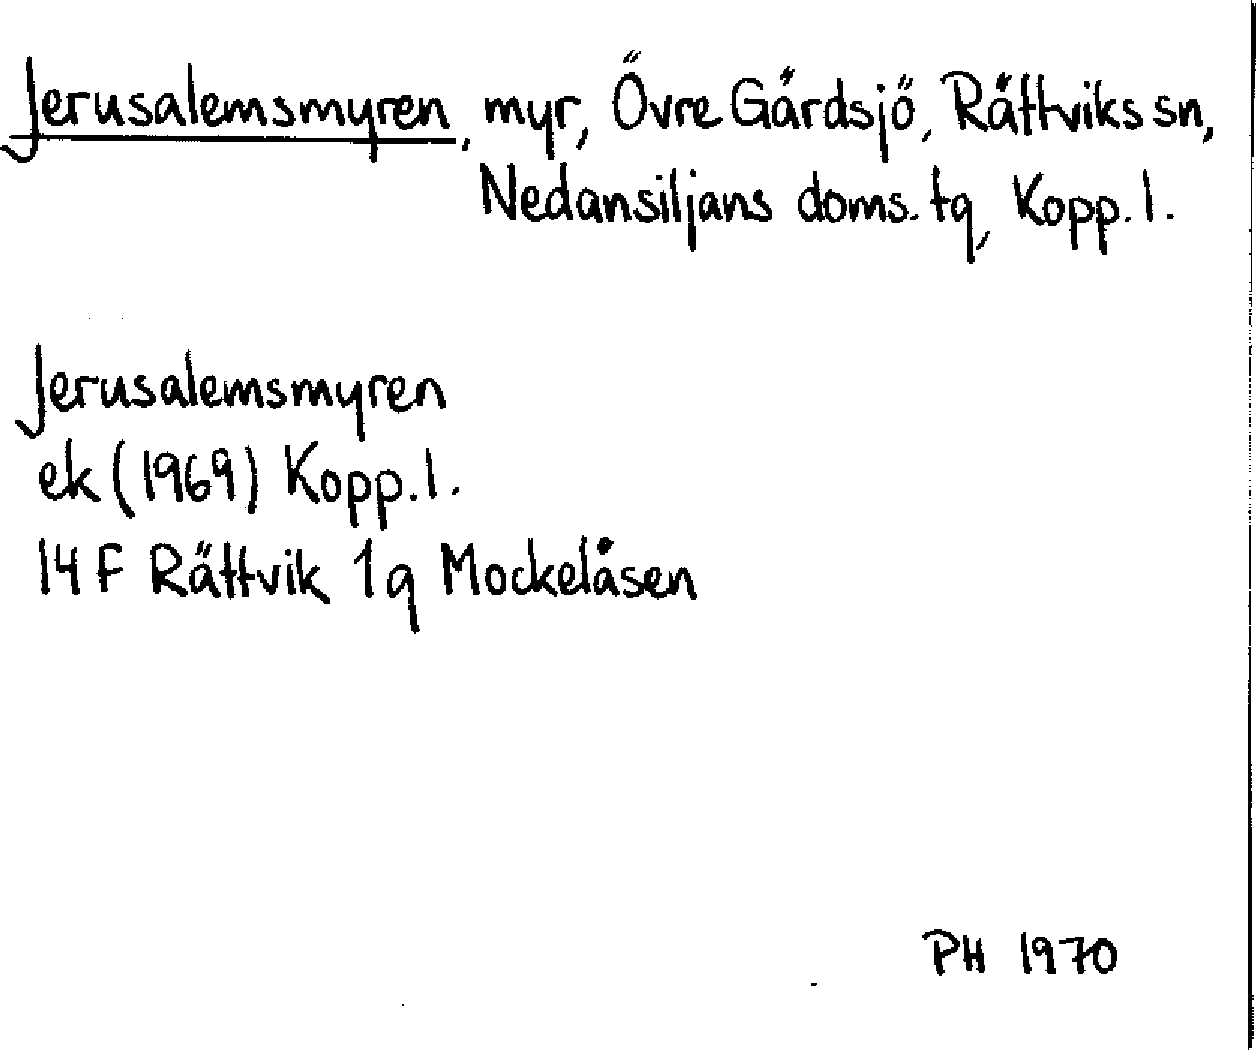 Jerusalemsmyren, myr, Övre Gärdsjö, Rättviks sn,
Nedansiljans doms. tg, Kopp. l.
Jerusalemsmyren
ek (1969) Kopp. l.
14 F Rättvik 1g Mockelåsen
PH 1970